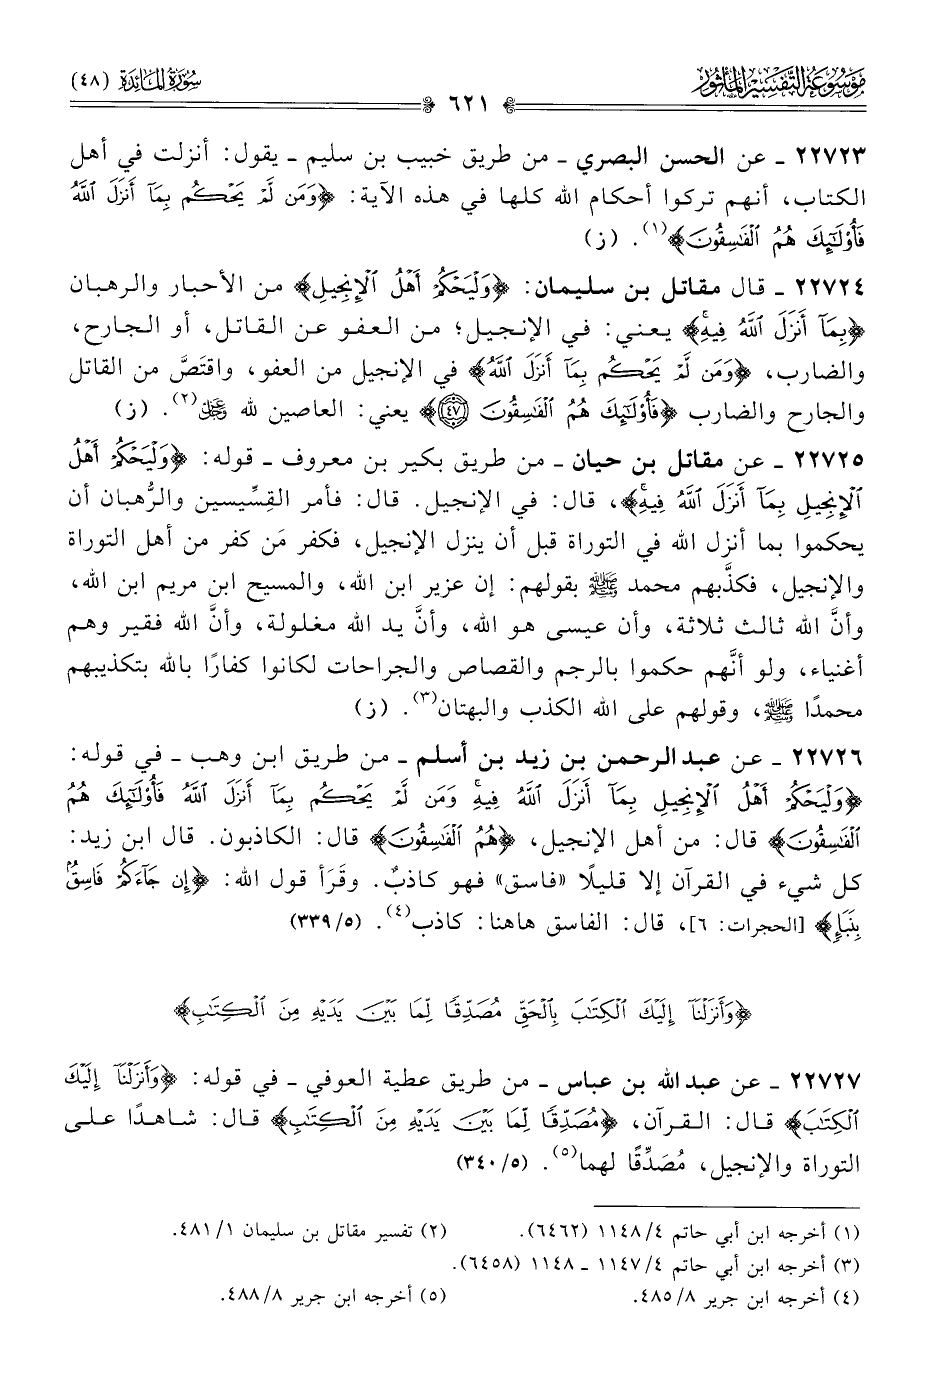 موسوعة التفسير المأثور
سورة المائدة (٤٨)
٦٢١
٢٢٧٢٣ ـ عن الحسن البصري ـ من طريق خبيب بن سليم ـ يقول: أنزلت في أهل
الكتاب، أنهم تركوا أحكام الله كلها في هذه الآية: ﴿وَمَن لَّمْ يَحْكُم بِمَآ أَنزَلَ ٱللَّهُ
فَأُوْلَٰٓئِكَ هُمُ ٱلْفَٰسِقُونَ﴾(١). (ز)
٢٢٧٢٤ ـ قال مقاتل بن سليمان: ﴿وَلْيَحْكُمْ أَهْلُ ٱلْإِنجِيلِ﴾ من الأحبار والرهبان
﴿بِمَآ أَنزَلَ ٱللَّهُ فِيهِ﴾ يعني: في الإنجيل؛ من العفو عن القاتل، أو الجارح،
والضارب، ﴿وَمَن لَّمْ يَحْكُم بِمَآ أَنزَلَ ٱللَّهُ﴾ في الإنجيل من العفو، واقتَصَّ من القاتل
والجارح والضارب ﴿فَأُوْلَٰٓئِكَ هُمُ ٱلْفَٰسِقُونَ ٤٧﴾ يعني: العاصين لله ﷿(٢). (ز)
٢٢٧٢٥ ـ عن مقاتل بن حيان ـ من طريق بكير بن معروف ـ قوله: ﴿وَلْيَحْكُمْ أَهْلُ
ٱلْإِنجِيلِ بِمَآ أَنزَلَ ٱللَّهُ فِيهِ﴾، قال: في الإنجيل. قال: فأمر القِسِّيسين والرُّهبان أن
يحكموا بما أنزل الله في التوراة قبل أن ينزل الإنجيل، فكفر مَن كفر من أهل التوراة
والإنجيل، فكذَّبهم محمد ﷺ بقولهم: إن عزير ابن الله، والمسيح ابن مريم ابن الله،
وأنَّ الله ثالث ثلاثة، وأن عيسى هو الله، وأنَّ يد الله مغلولة، وأنَّ الله فقير وهم
أغنياء، ولو أنَّهم حكموا بالرجم والقصاص والجراحات لكانوا كفارًا بالله بتكذيبهم
محمدًا ﷺ، وقولهم على الله الكذب والبهتان(٣). (ز)
٢٢٧٢٦ ـ عن عبد الرحمن بن زيد بن أسلم ـ من طريق ابن وهب ـ في قوله:
﴿وَلْيَحْكُمْ أَهْلُ ٱلْإِنجِيلِ بِمَآ أَنزَلَ ٱللَّهُ فِيهِ وَمَن لَّمْ يَحْكُم بِمَآ أَنزَلَ ٱللَّهُ فَأُوْلَٰٓئِكَ هُمُ
ٱلْفَٰسِقُونَ﴾ قال: من أهل الإنجيل، ﴿هُمُ ٱلْفَٰسِقُونَ﴾ قال: الكاذبون. قال ابن زيد:
كل شيء في القرآن إلا قليلًا «فاسق» فهو كاذبٌ. وقَرَأ قول الله: ﴿إِن جَآءَكُمْ فَاسِقُۢ
بِنَبَإٍ﴾ [الحجرات: ٦]، قال: الفاسق هاهنا: كاذب(٤). (٣٣٩/٥)
﴿وَأَنزَلْنَآ إِلَيْكَ ٱلْكِتَٰبَ بِٱلْحَقِّ مُصَدِّقًا لِّمَا بَيْنَ يَدَيْهِ مِنَ ٱلْكِتَٰبِ﴾
٢٢٧٢٧ ـ عن عبد الله بن عباس ـ من طريق عطية العوفي ـ في قوله: ﴿وَأَنزَلْنَآ إِلَيْكَ
ٱلْكِتَٰبَ﴾ قال: القرآن، ﴿مُصَدِّقًا لِّمَا بَيْنَ يَدَيْهِ مِنَ ٱلْكِتَٰبِ﴾ قال: شاهدًا على
التوراة والإنجيل، مُصَدِّقًا لهما(٥). (٣٤٠/٥)
(١) أخرجه ابن أبي حاتم ١١٤٨/٤ (٦٤٦٢). (٢) تفسير مقاتل بن سليمان ٤٨١/١.
(٣) أخرجه ابن أبي حاتم ١١٤٧/٤ ـ ١١٤٨ (٦٤٥٨).
(٤) أخرجه ابن جرير ٤٨٥/٨. (٥) أخرجه ابن جرير ٤٨٨/٨.